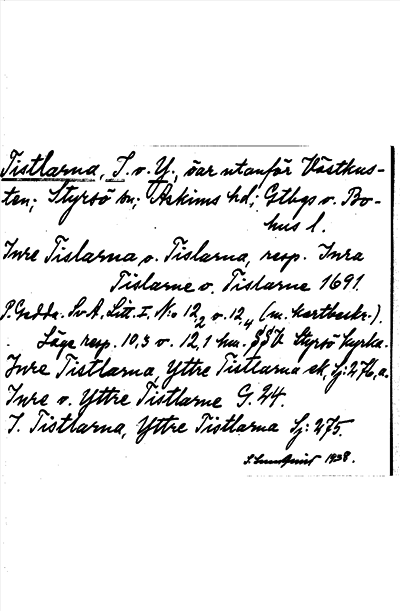 Tistlarna, I. o. Y., öar utanför Västkus-
ten; Styrsö sn; Askims hd; Gtbgs o. Bo-
hus l.
Inre Tislarna o. Tislarna, resp. Inra
Tislarne o. Tislarne 1691.
P. Gedda. Sv. A, Litt. I, N:o 12,2 o. 12,4 (m. kartbeskr.).
Läge resp. 10,3 o. 12,1 km. SSV Styrsö kyrka.
Inre Tistlarna, Yttre Tistlarna ek. Sj: 276, a.
Inre o. Yttre Tistlarne G. 24.
I. Tistlarna, Yttre Tistlarna Sj: 275.
1938.